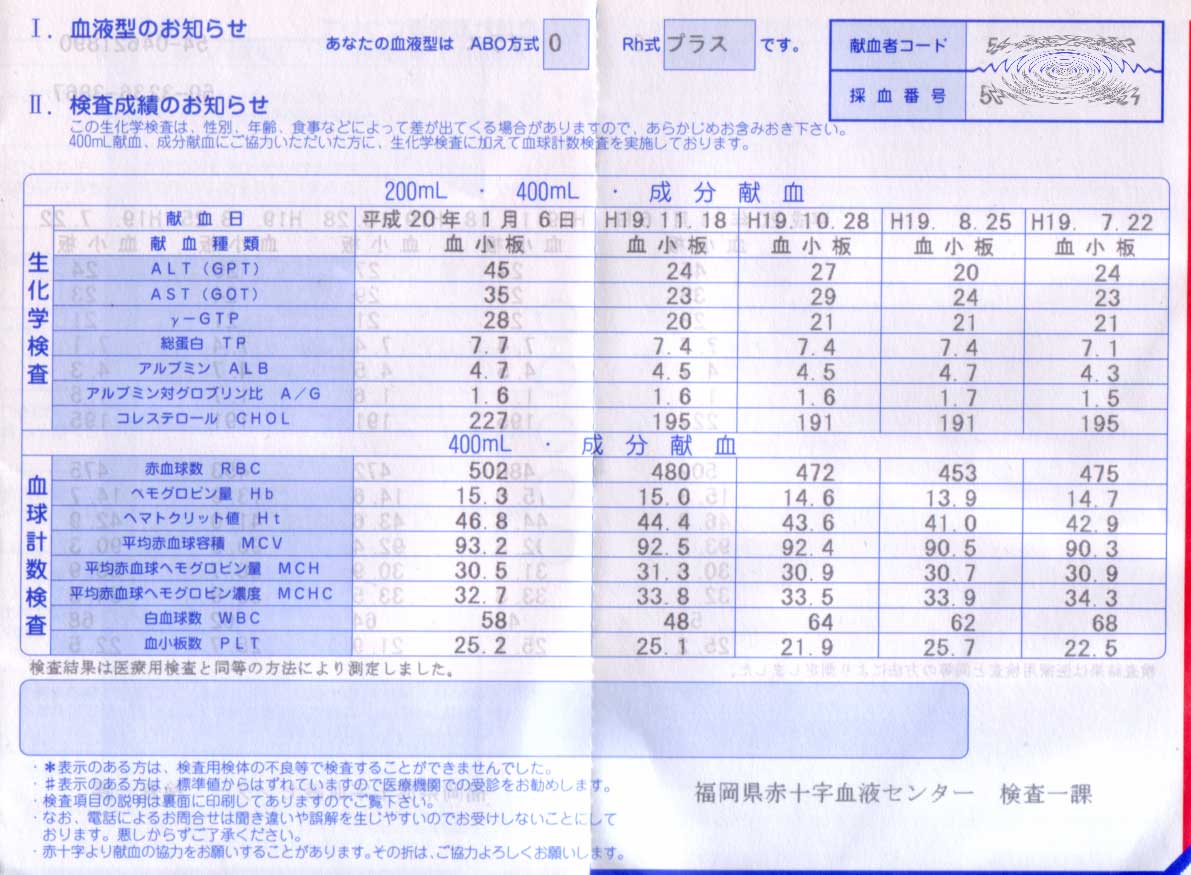 Ⅰ. 血液型のお知らせ
あなたの血液型は ABO方式 O Rh式 プラス です。
献血者コード
採血番号
Ⅱ. 検査成績のお知らせ
この生化学検査は、性別、年齢、食事などによって差が出てくる場合がありますので、あらかじめお含みおき下さい。
400mL献血、成分献血にご協力いただいた方に、生化学検査に加えて血球計数検査を実施しております。
200mL ・ 400mL ・ 成分献血
献血日 平成20年 1月 6日 H19.11.18 H19.10.28 H19. 8.25 H19. 7.22
献血種類 血小板 血小板 血小板 血小板 血小板
生化学検査
ALT(GPT) 45 24 27 20 24
AST(GOT) 35 23 29 24 23
γ-GTP 28 20 21 21 21
総蛋白 TP 7.7 7.4 7.4 7.4 7.1
アルブミン ALB 4.7 4.5 4.5 4.7 4.3
アルブミン対グロブリン比 A/G 1.6 1.6 1.6 1.7 1.5
コレステロール CHOL 227 195 191 191 195
400mL ・ 成分献血
血球計数検査
赤血球数 RBC 502 480 472 453 475
ヘモグロビン量 Hb 15.3 15.0 14.6 13.9 14.7
ヘマトクリット値 Ht 46.8 44.4 43.6 41.0 42.9
平均赤血球容積 MCV 93.2 92.5 92.4 90.5 90.3
平均赤血球ヘモグロビン量 MCH 30.5 31.3 30.9 30.7 30.9
平均赤血球ヘモグロビン濃度 MCHC 32.7 33.8 33.5 33.9 34.3
白血球数 WBC 58 48 64 62 68
血小板数 PLT 25.2 25.1 21.9 25.7 22.5
検査結果は医療用検査と同等の方法により測定しました。
・＊表示のある方は、検査用検体の不良等で検査することができませんでした。
・♯表示のある方は、標準値からはずれていますので医療機関での受診をお勧めします。
・検査項目の説明は裏面に印刷してありますのでご覧下さい。
・なお、電話によるお問合せは聞き違いや誤解を生じやすいのでお受けしないことにして
おります。悪しからずご了承ください。
・赤十字より献血の協力をお願いすることがあります。その折は、ご協力よろしくお願いします。
福岡県赤十字血液センター 検査一課